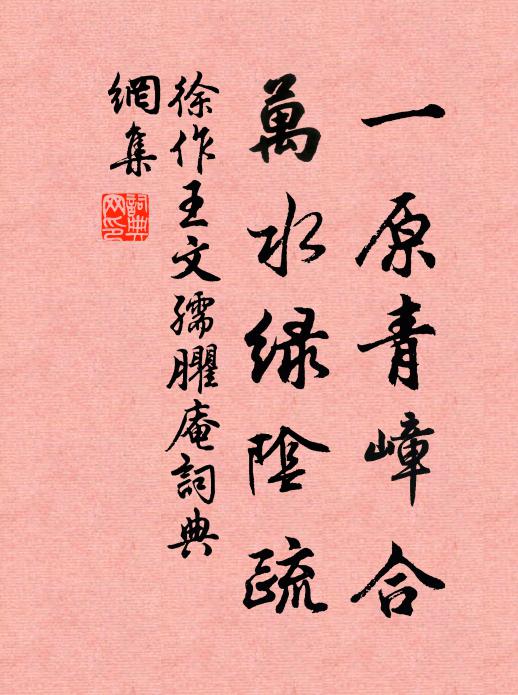 一原青嶂合
萬水绿陰疏
徐作王文孺臞庵詞典
網集
詞典網印